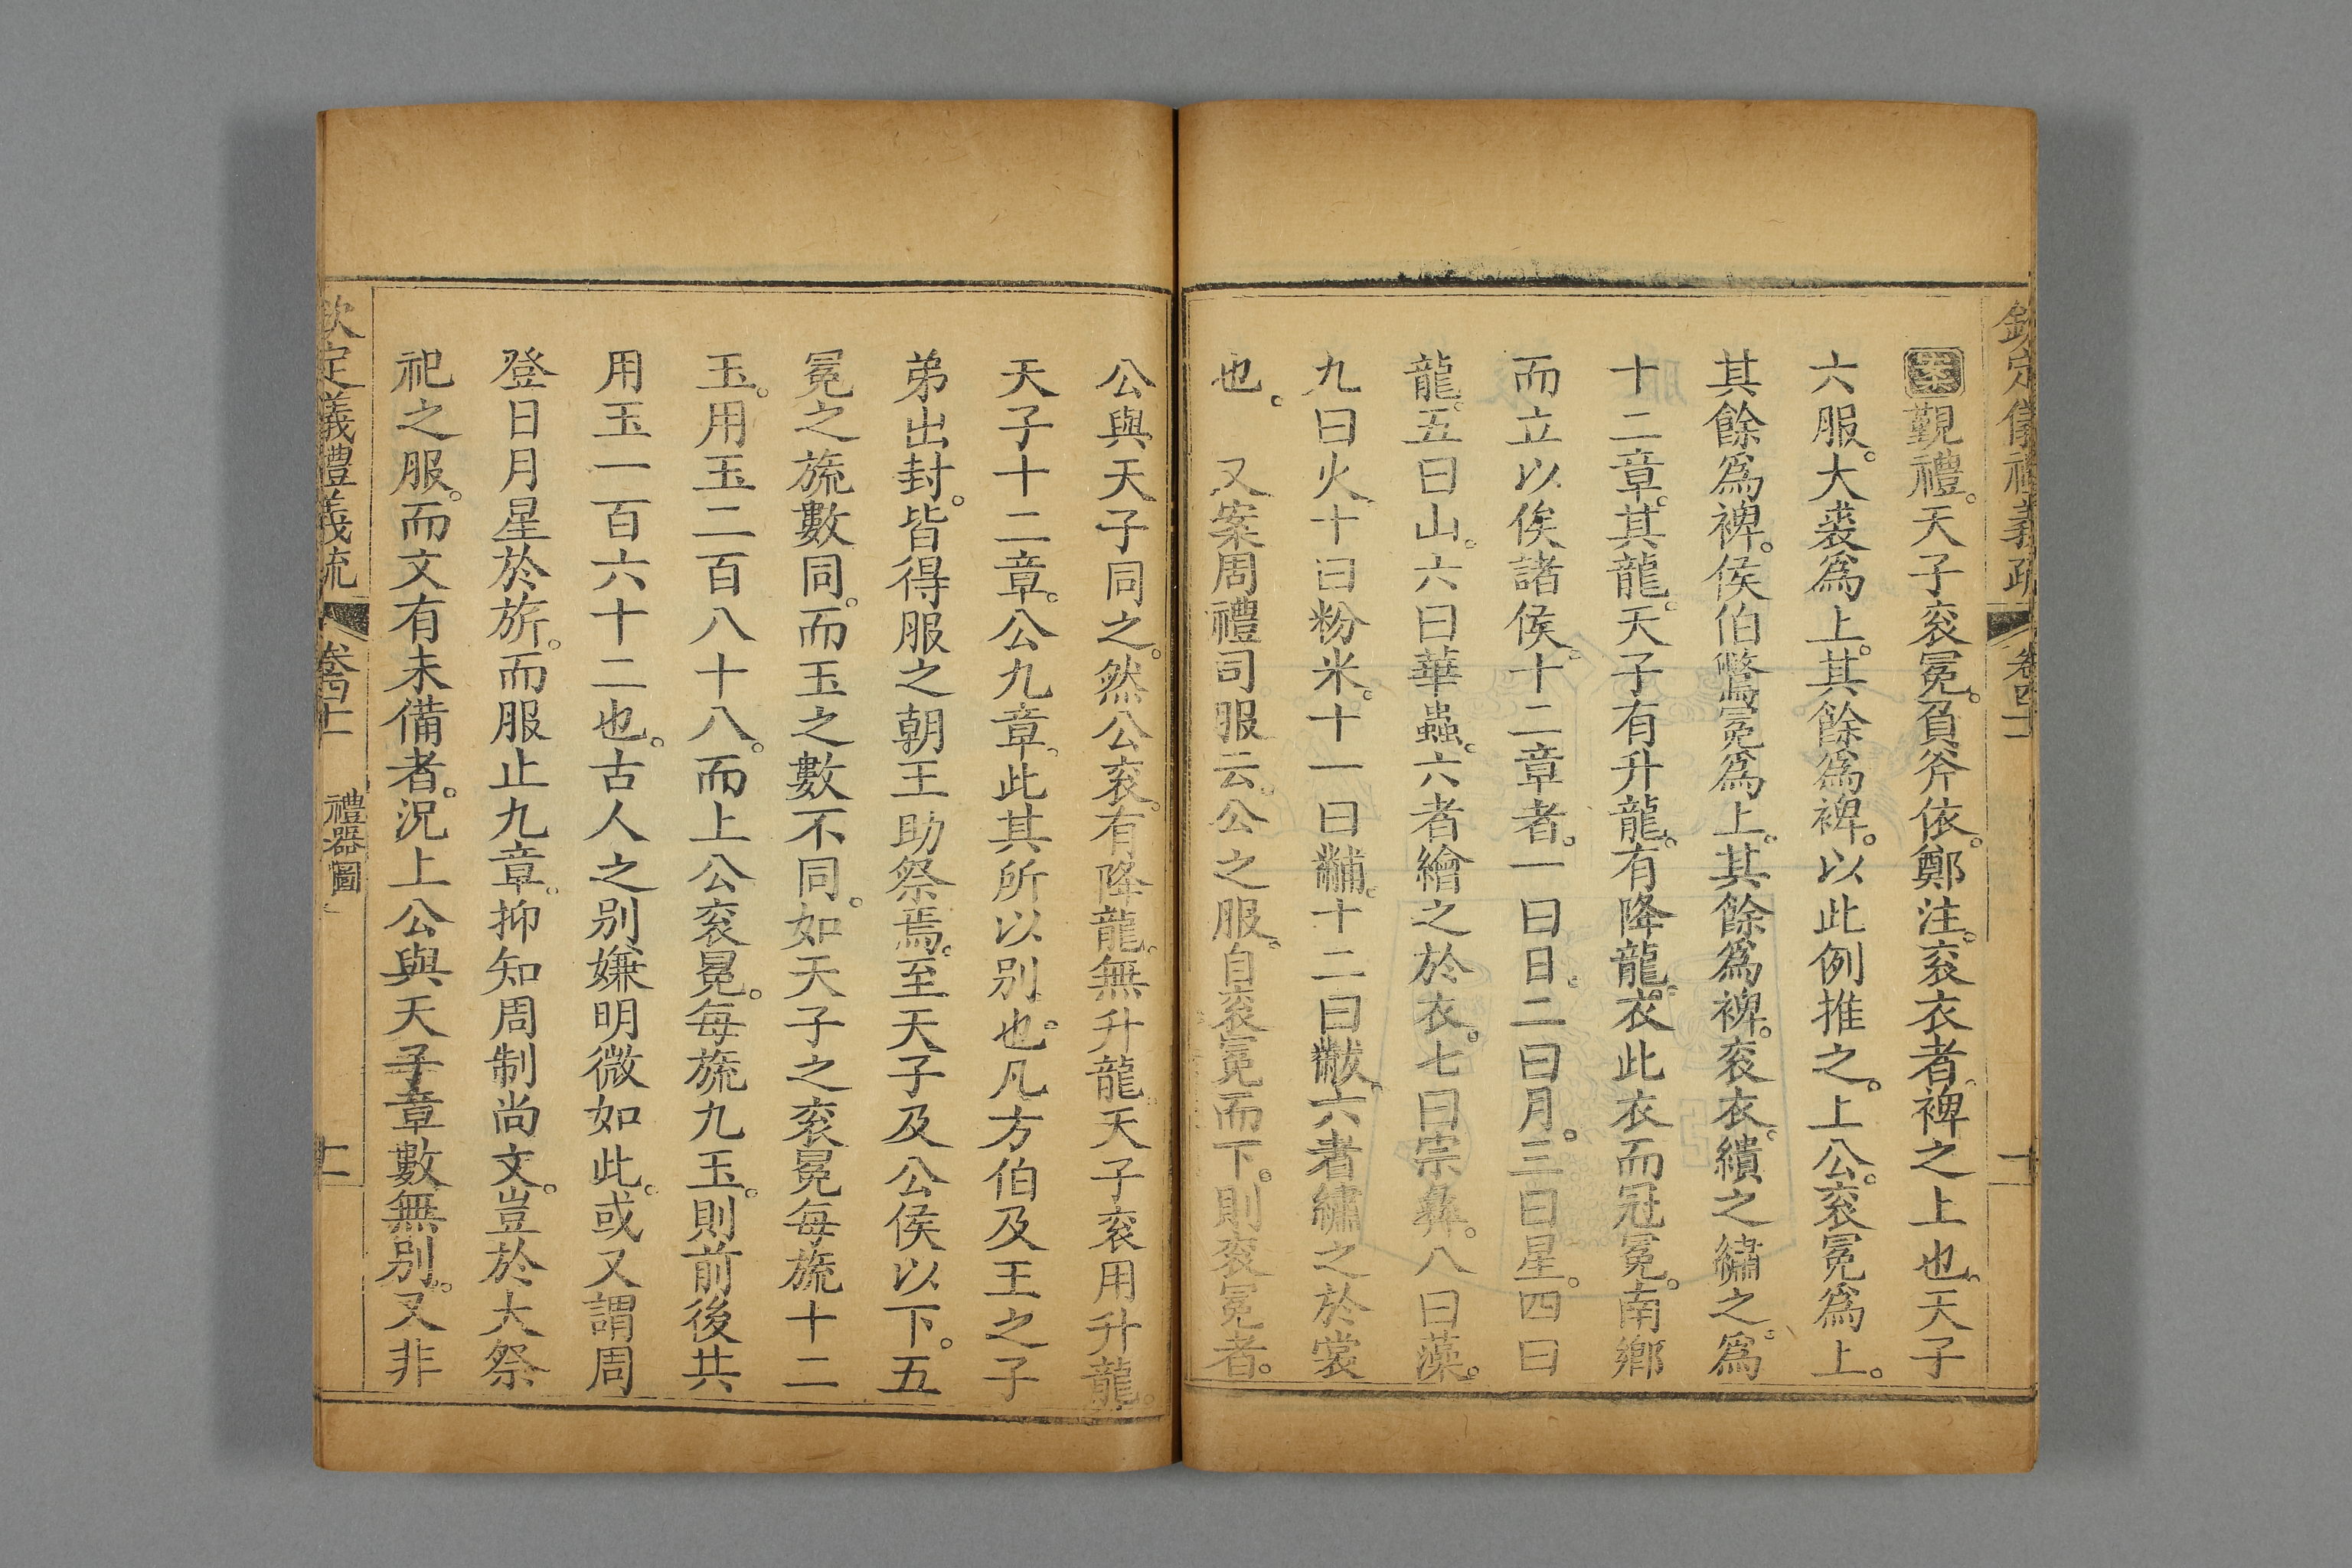 欽定儀禮義疏 卷四十一
案覲禮。天子衮冕。負斧依。鄭注。衮衣者。裨之上也。天子
六服。大裘爲上。其餘爲裨。以此例推之。上公。衮冕爲上。
其餘爲裨。侯伯鷩冕爲上。其餘爲裨。衮衣。繢之繡之。爲
十二章。其龍。天子有升龍。有降龍。衣此衣而冠冕。南鄉
而立以俟諸侯。十二章者。一曰日。二曰月。三曰星。四曰
龍。五曰山。六曰華蟲。六者繪之於衣。七曰宗彝。八曰藻。
九曰火。十曰粉米。十一曰黼。十二曰黻。六者繡之於裳
也。 又案周禮司服云。公之服。自衮冕而下。則衮冕者。
公與天子同之。然公衮。有降龍。無升龍。天子衮用升龍。
天子十二章。公九章。此其所以别也。凡方伯及王之子
弟出封。皆得服之朝王助祭焉。至天子及公侯以下。五
冕之旒數同。而玉之數不同。如天子之衮冕每旒十二
玉。用玉二百八十八。而上公衮冕。每旒九玉。則前後共
用玉一百六十二也。古人之别嫌明微如此。或又謂周
登日月星於旂。而服止九章。抑知周制尚文。豈於大祭
祀之服。而文有未備者。況上公與天子章數無别。又非
欽定儀禮義疏 卷四十一 禮器圖 十一